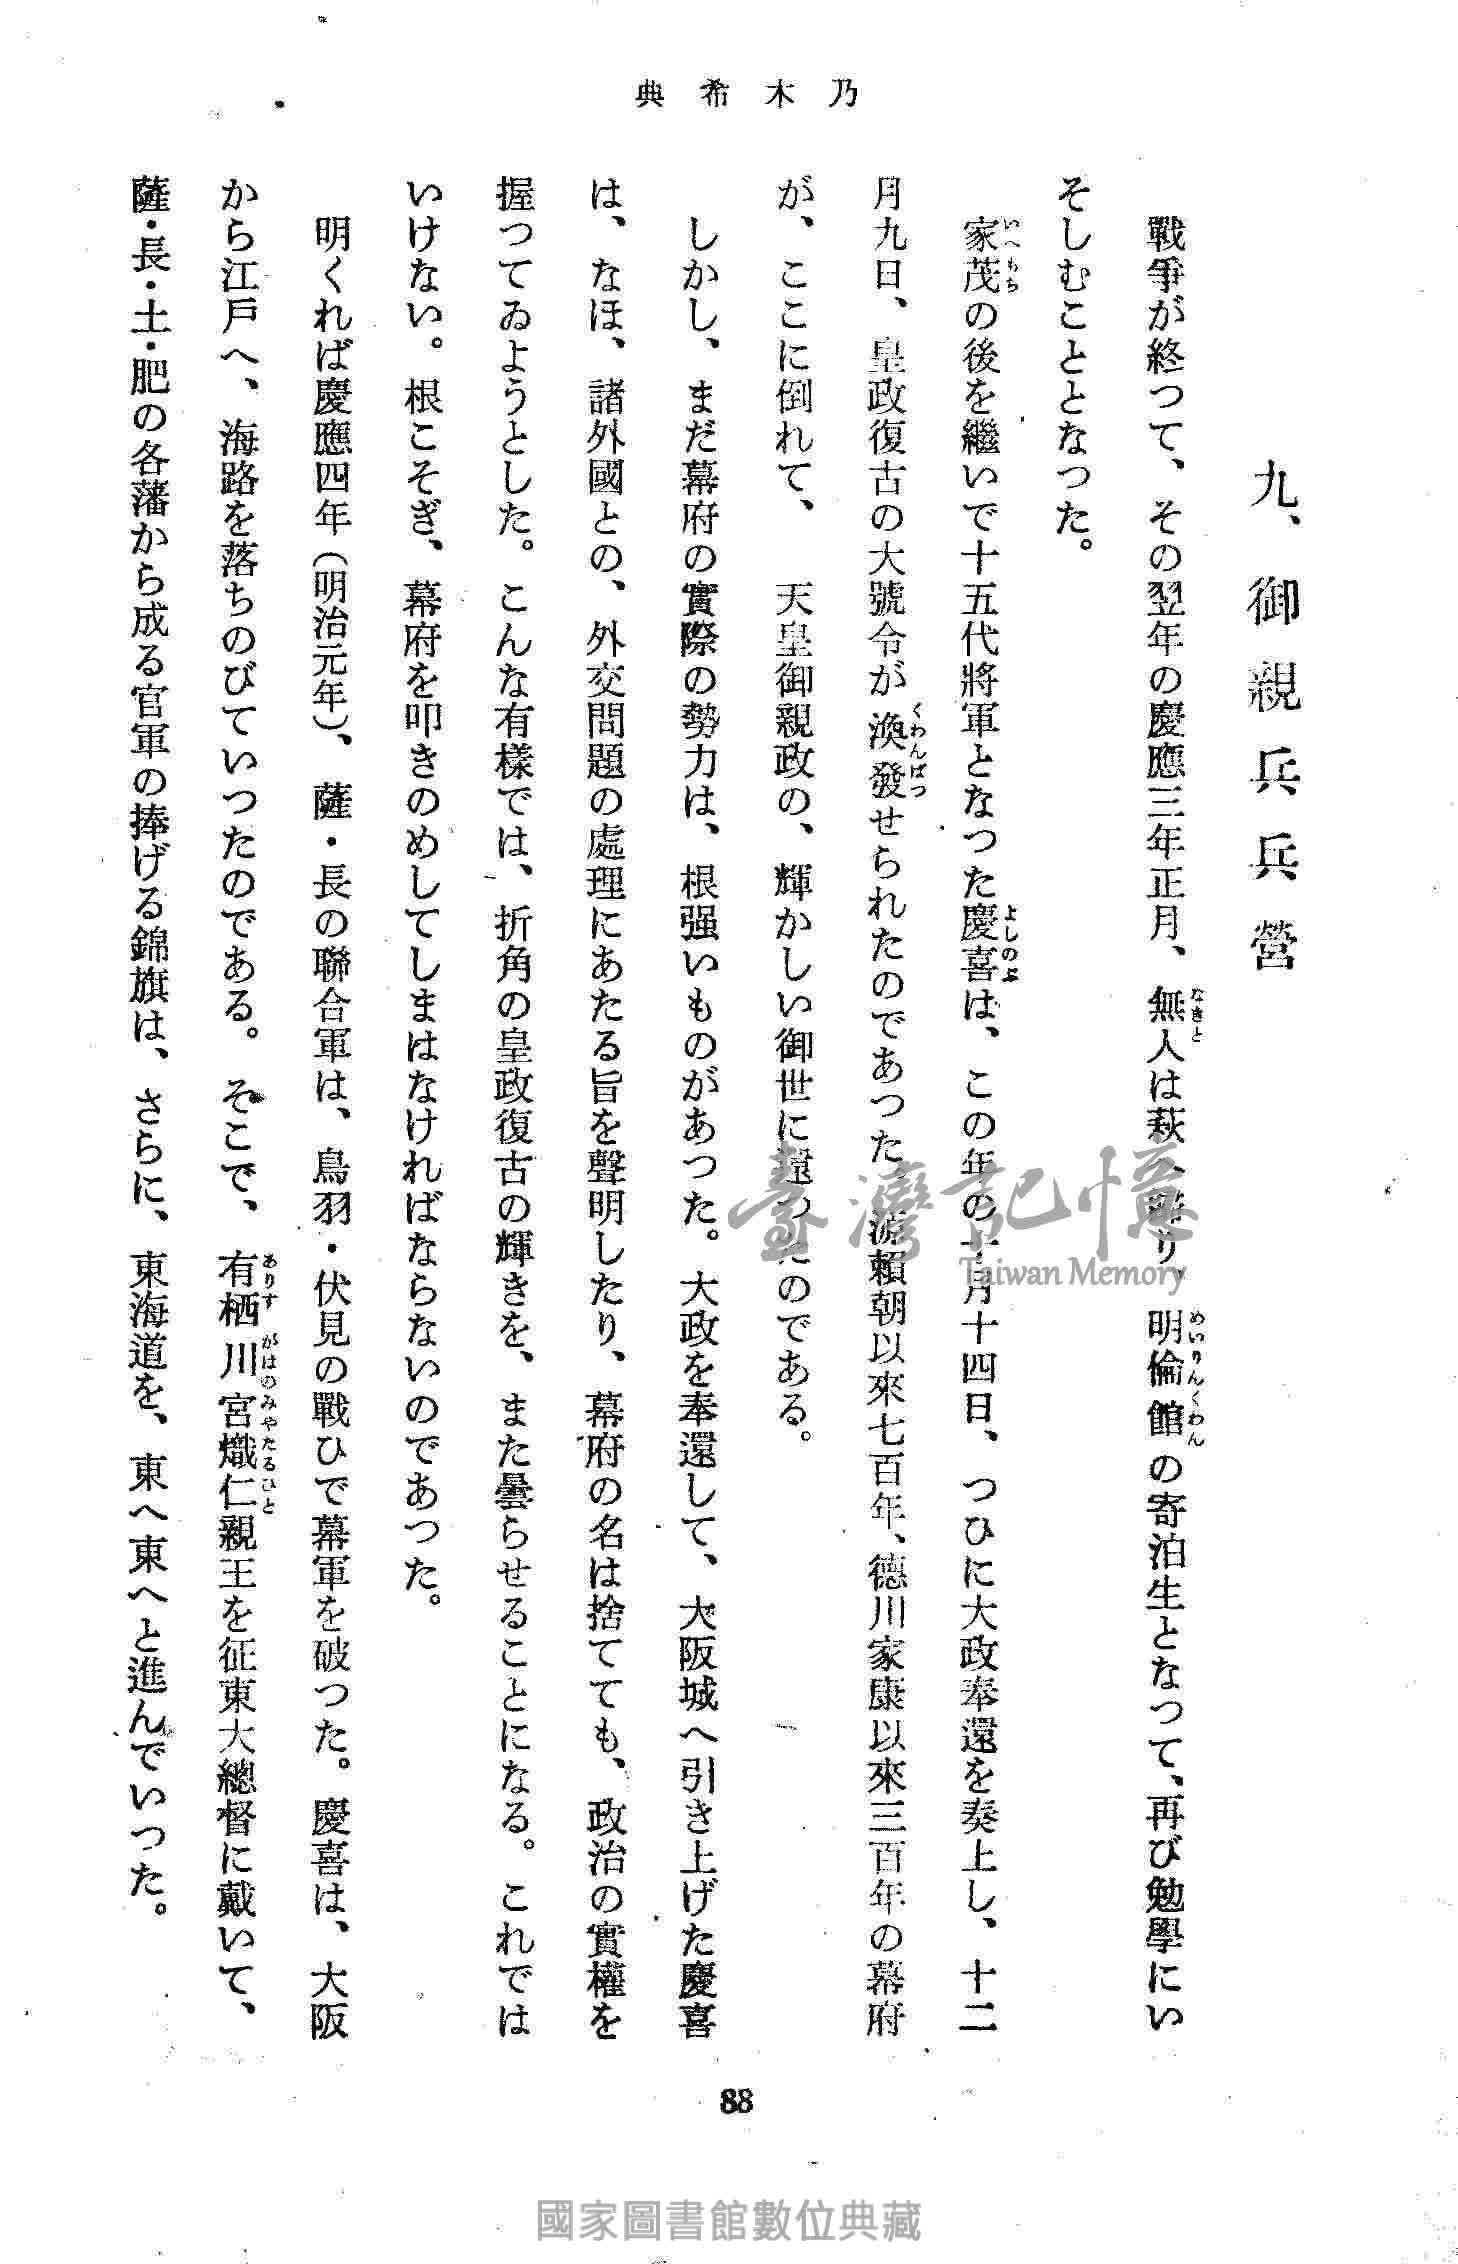 乃木希典
九、御親兵兵營
戰爭が終つて、その翌年の慶應三年正月、無人は萩へり、明倫館の寄泊生となつて、再び勉學にい
なきと
めいりんくわん
そしむこととなつた。
家茂の後を繼いで十五代將軍となつた慶喜は、この年の十月十四日、つひに大政奉還を奏上し、十二
いへもち
よしのぶ
月九日、皇政復古の大號令が渙發せられたのであつた。源賴朝以來七百年、德川家康以來三百年の幕府
くわんぱつ
が、ここに倒れて、　天皇御親政の、輝かしい御世に還つたのである。
しかし、まだ幕府の實際の勢力は、根强いものがあつた。大政を奉還して、大阪城へ引き上げた慶喜
は、なほ、諸外國との、外交問題の處理にあたる旨を聲明したり、幕府の名は捨てても、政治の實權を
握つてゐようとした。こんな有樣では、折角の皇政復古の輝きを、また曇らせることになる。これでは
いけない。根こそぎ、幕府を叩きのめしてしまはなければならないのであつた。
明くれば慶應四年（明治元年）、薩・長の聯合軍は、鳥羽・伏見の戰ひで幕軍を破つた。慶喜は、大阪
から江戶へ、海路を落ちのびていつたのである。そこで、有栖川宮熾仁親王を征東大總督に戴いて、
ありすがはのみやたるひと
薩・長・土・肥の各藩から成る官軍の捧げる錦旗は、さらに、東海道を、東へ東へと進んでいつた。
88
臺灣記憶
Taiwan Memory
國家圖書館數位典藏